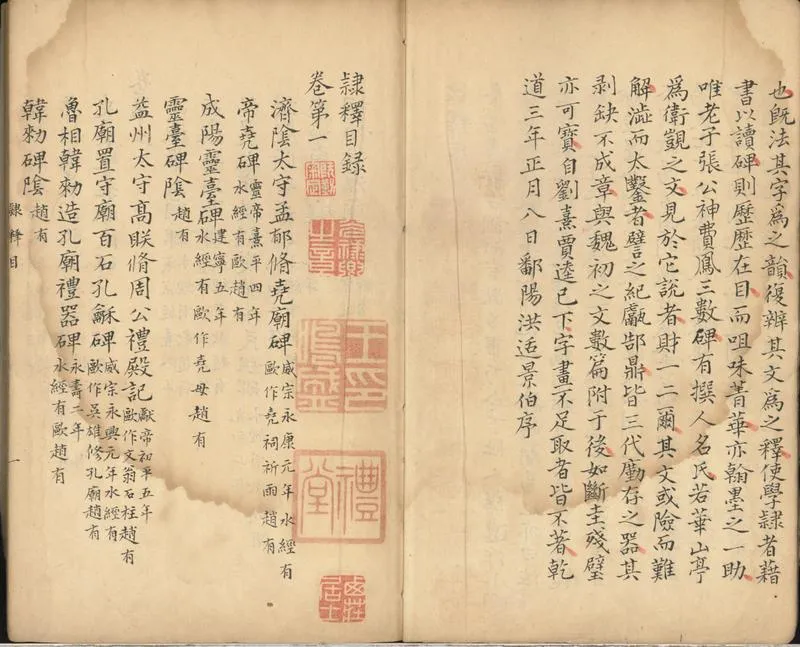 也既法其字為之韻復辯其文為之釋使學隸者藉
書以讀碑則歷歷在目而咀味菁華亦翰墨之一助
唯老子張公神費鳳三數碑有撰人名氏若華山亭
為衛覬之文見於它說者財一二爾其文或險而難
解澁而太鑿者譬之紀甗郜鼎皆三代廑存之器其
剥缺不成章與魏初之文數篇附于後如斷圭殘璧
亦可寶自劉熹賈逵已下字畫不足取者皆不著乾
道三年正月八日鄱陽洪适景伯序
隸釋目錄
卷第一
濟陰太守孟郁脩堯廟碑 威宗永康元年水經有
歐作堯祠祈雨趙有
帝堯碑 靈帝熹平四年
水經有歐趙有
成陽靈臺碑 建寧五年
水經有歐作堯母趙有
靈臺碑陰 趙有
益州太守高眹脩周公禮殿記 獻帝初平五年
歐作文翁石柱趙有
孔廟置守廟百石孔龢碑 威宗永興元年水經有
歐作吳雄修孔廟趙有
魯相韓勑造孔廟禮器碑 永壽二年
水經有歐趙有
韓勑碑陰 趙有
隸釋目
一
禮堂